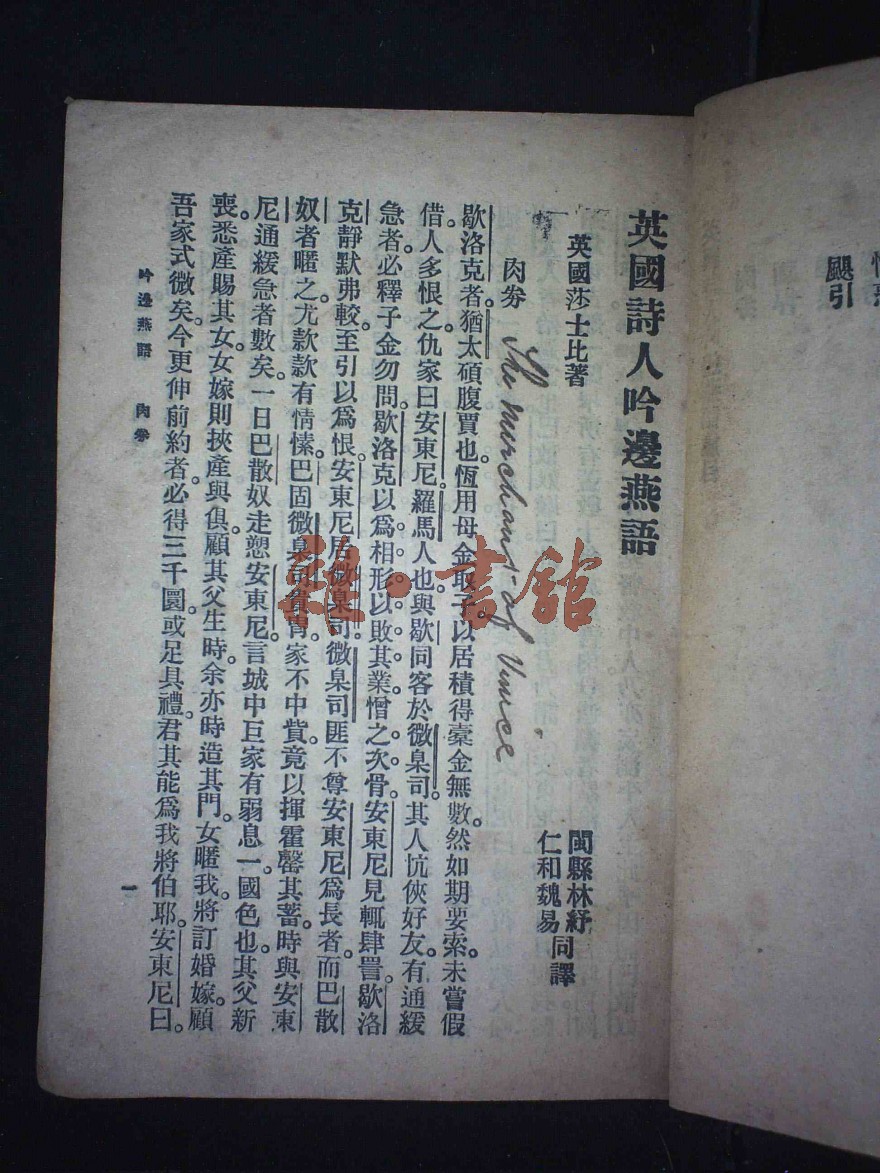 颶引
英國詩人吟邊燕語
英國莎士比著
閩縣林紓
仁和魏易同譯
肉券 The Merchant of Venice
歇洛克者。猶太碩腹賈也。恆用母金取子。以居積得橐金無數。然如期要索。未嘗假
借。人多恨之。仇家曰安東尼。羅馬人也。與歇同客於微臬司。其人忼俠好友。有通緩
急者。必釋子金勿問。歇洛克以為相形以敗其業。憎之次骨。安東尼見輒肆詈。歇洛
克靜默弗較。至引以為恨。安東尼居微臬司。微臬司匪不尊安東尼為長者。而巴散
奴者暱之尤款款有情愫。巴固微臬司貴胄。家不中貲。竟以揮霍罄其蓄。時與安東
尼通緩急者數矣。一日巴散奴走愬安東尼。言城中巨家有弱息一。國色也。其父新
喪。悉產賜其女。女嫁則挾產與俱。顧其父生時。余亦時造其門。女暱我。將訂婚嫁。顧
吾家式微矣。今更伸前約者。必得三千圜。或足具禮。君其能為我將伯耶。安東尼曰。
吟邊燕語 肉券
一
雜·書館